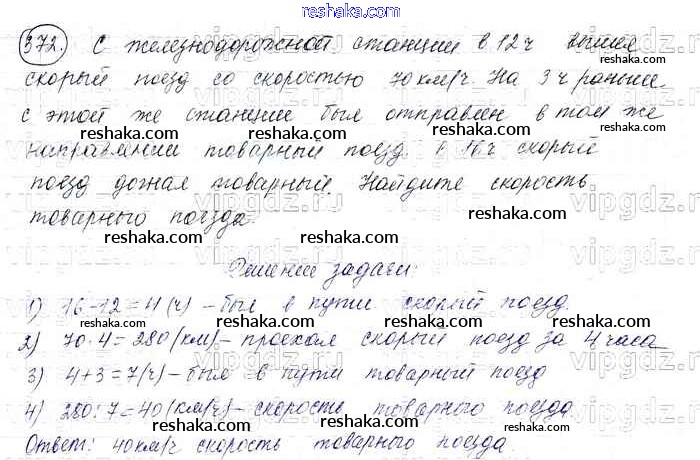 reshaka.com
372. С железнодорожной станции в 12 ч вышел
скорый поезд со скоростью 70 км/ч. На 3 ч раньше
с этой же станции был отправлен в том же
reshaka.com reshaka.com reshaka.com
направлении товарный поезд. В 16 ч скорый
reshaka.com reshaka.com reshaka.com
поезд догнал товарный. Найдите скорость
vipgdz.ru vipgdz.ru vipgdz.ru
товарного поезда.
reshaka.com reshaka.com reshaka.com
Решение задачи:
1) 16-12=4(ч) – был в пути скорый поезд.
reshaka.com reshaka.com reshaka.com
2) 70·4=280(км) – проехал скорый поезд за 4 часа
reshaka.com reshaka.com reshaka.com
3) 4+3=7(ч) – был в пути товарный поезд
4) 280:7=40(км/ч) – скорость товарного поезда
reshaka.com reshaka.com reshaka.com
Ответ: 40км/ч скорость товарного поезда
reshaka.com